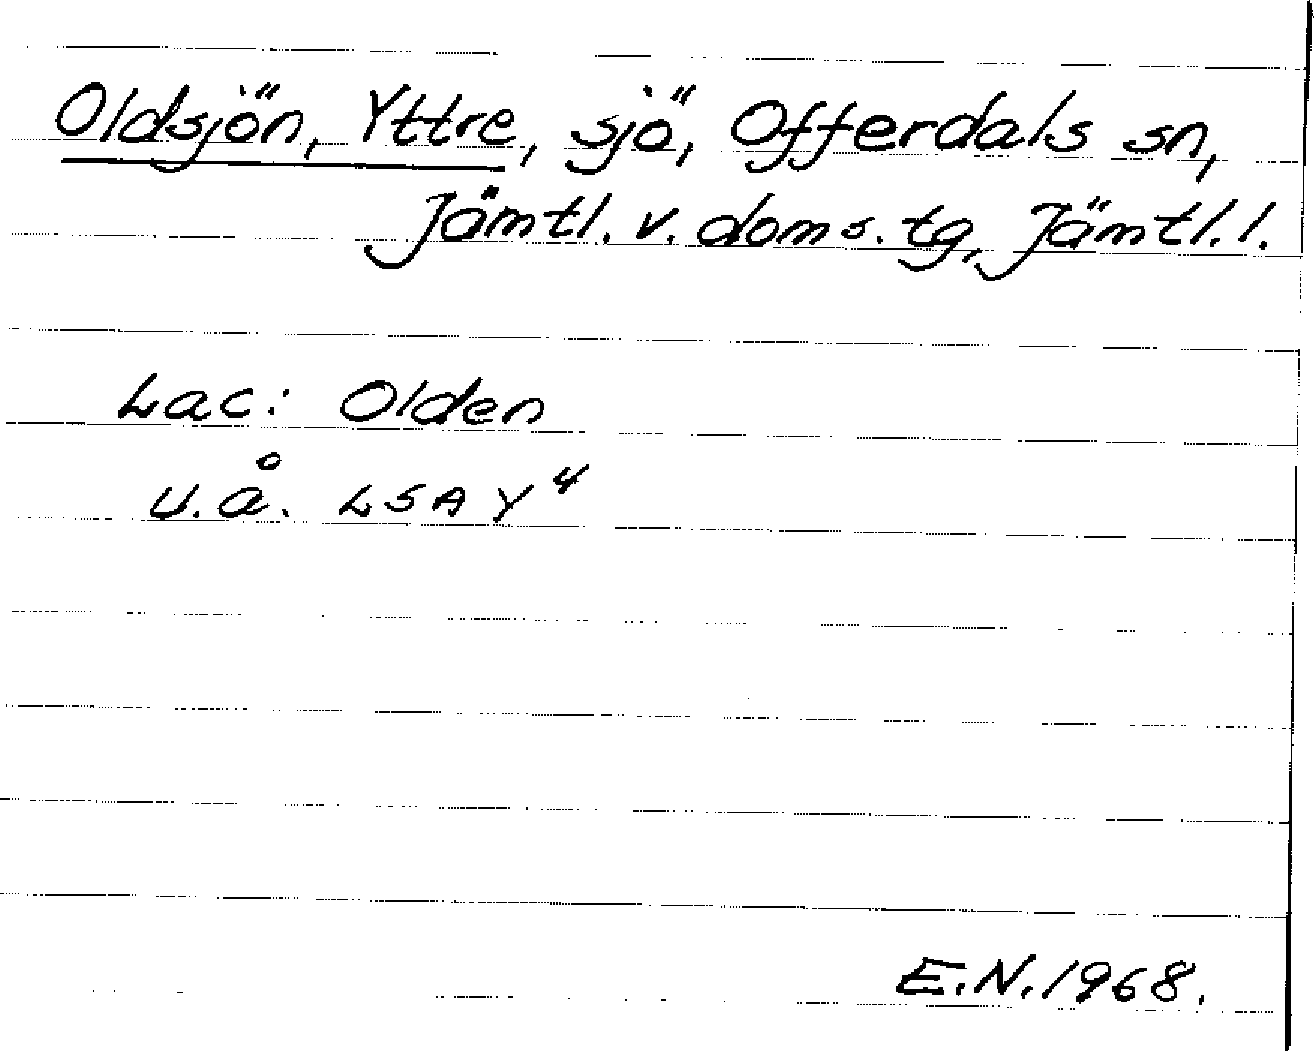 Oldsjön, Yttre, sjö, Offerdals sn,
Jämtl. v. doms. tg, Jämtl. l.
Lac: Olden
u. å. LSA Y⁴
E.N. 1968.